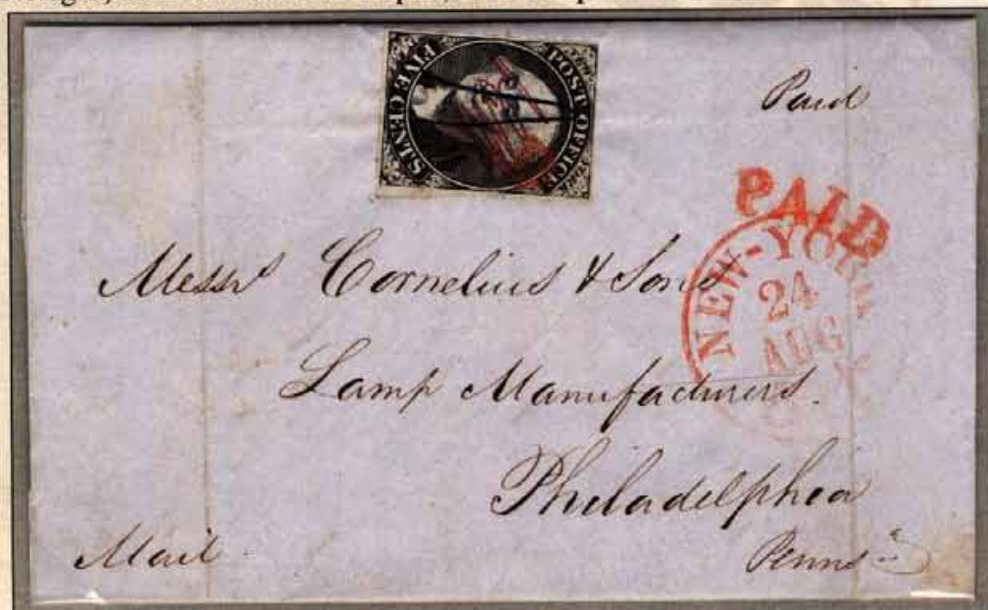 POST OFFICE
FIVE CENTS
Paid
PAID
NEW-YORK
24
AUG
Mess^rs Cornelius & Sons
Lamp Manufacturers.
Philadelphia
Mail
Penns^a